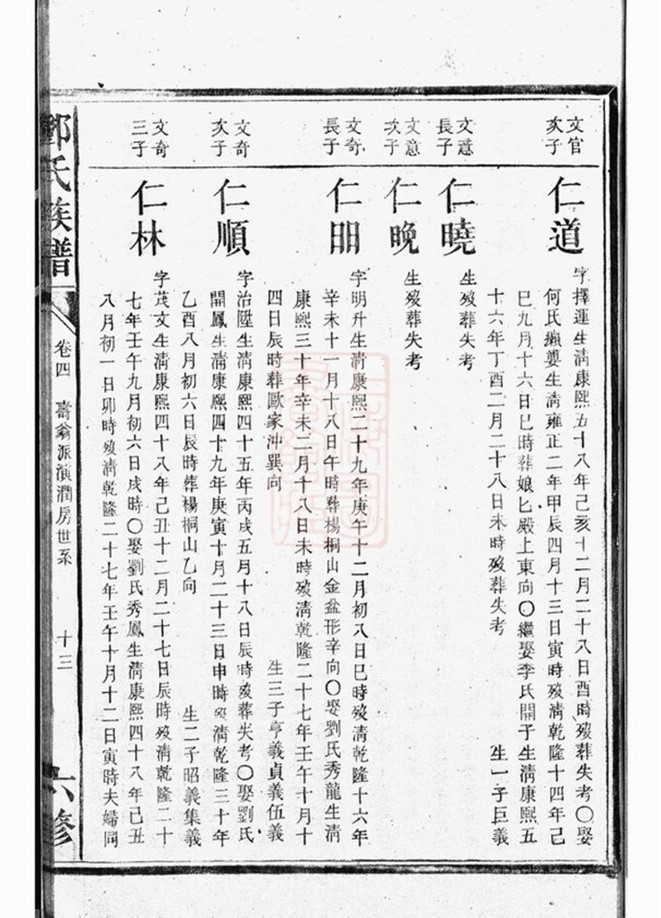 文官
次子
仁道
字擇運生清康熙五十八年己亥十二月二十八日酉時歿葬失考〇娶
何氏嬌嬰生清雍正二年甲辰四月十三日寅時歿清乾隆十四年己
巳九月十六日巳時葬娘七嚴上東向〇繼娶李氏開子生清康熙五
十六年丁酉二月二十八日未時歿葬失考 生一子巨義
文意
長子
仁曉
生歿葬失考
文意
次子
仁晚
生歿葬失考
文奇
長子
仁明
字明升生清康熙二十九年庚午十二月初八日巳時歿清乾隆十六年
辛未十一月十八日午時葬楊桐山金盆形辛向〇娶劉氏秀龍生清
康熙三十年辛未二月十八日未時歿清乾隆二十七年壬午十月十
四日辰時葬歐家沖巽向 生三子亨義貞義伍義
文奇
次子
仁順
字治陞生清康熙四十五年丙戌五月十八日辰時歿葬失考〇娶劉氏
開鳳生清康熙四十九年庚寅十月二十三日申時歿清乾隆三十年
乙酉八月初六日辰時葬楊桐山乙向 生二子昭義集義
文奇
三子
仁林
字茂文生清康熙四十八年己丑十二月二十七日辰時歿清乾隆二十
七年壬午九月初六日戌時〇娶劉氏秀鳳生清康熙四十八年己丑
八月初一日卯時歿清乾隆二十七年壬午十月十二日寅時夫婦同
鄧氏族譜
卷四 壽翁派演潤房世系 十三
六修